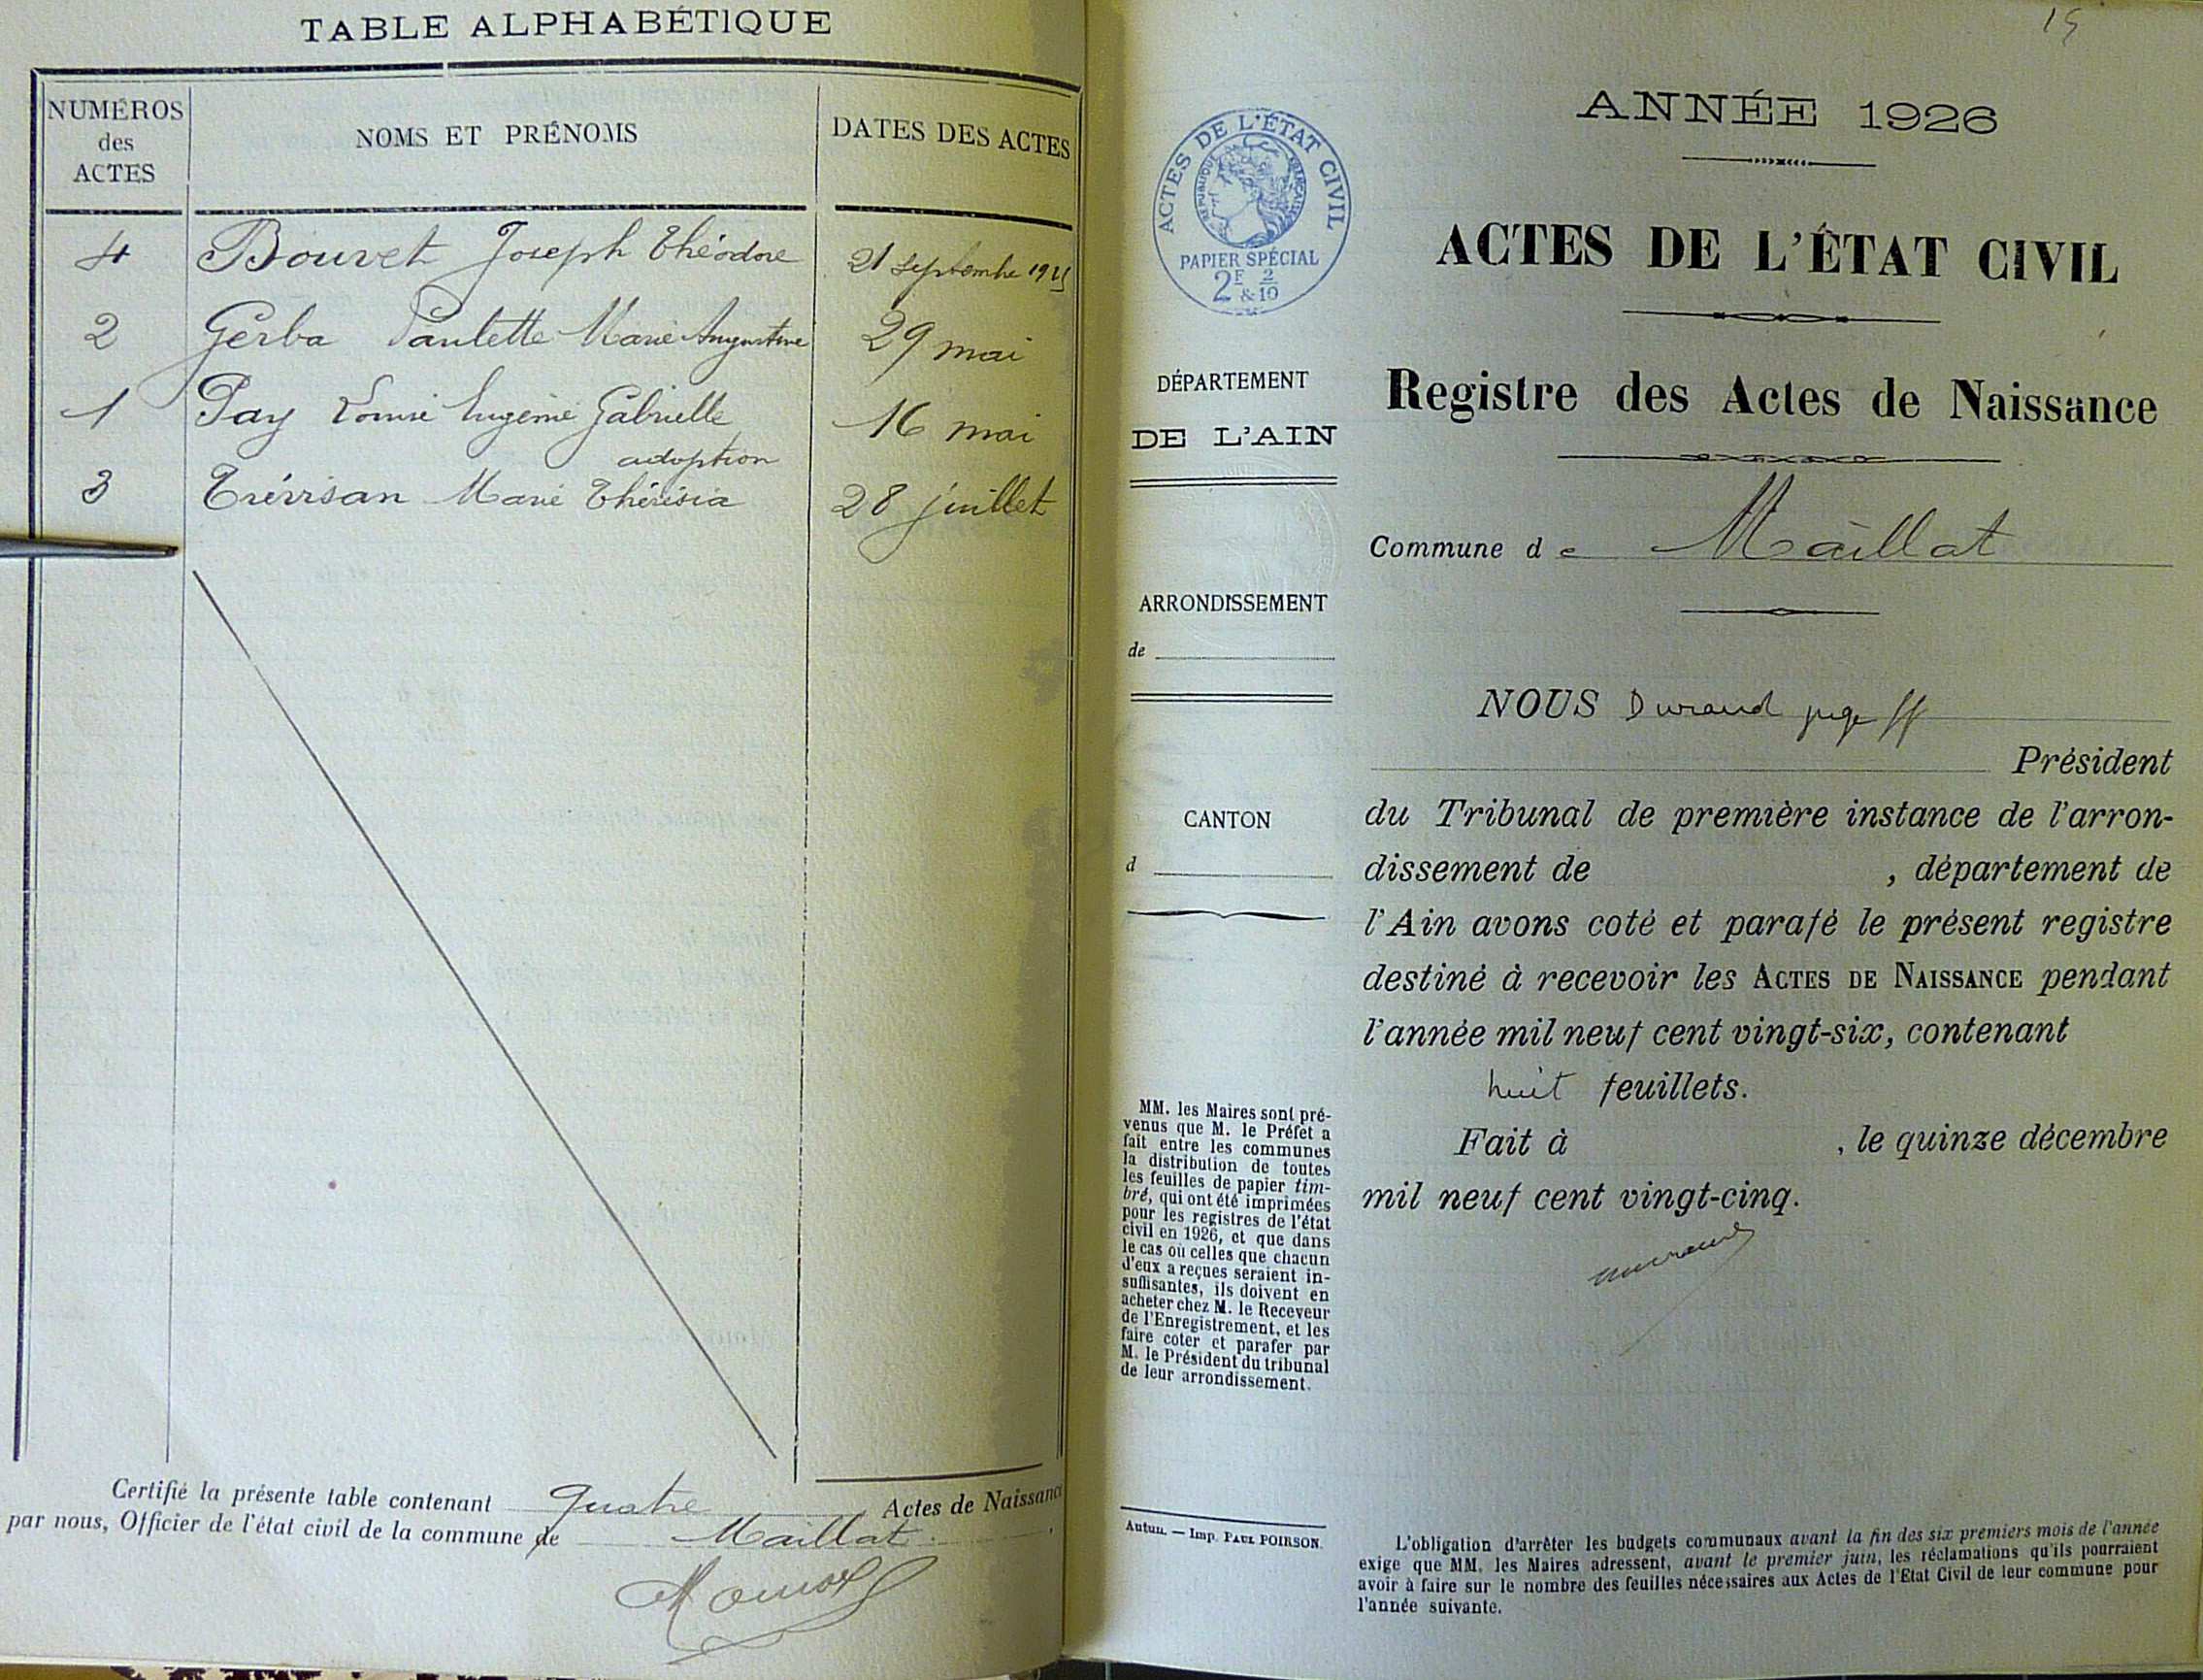 TABLE ALPHABÉTIQUE
NUMÉROS
des
ACTES
NOMS ET PRÉNOMS
DATES DES ACTES
4 Bouvet Joseph Théodore 21 septembre 1925
2 Gerba Paulette Marie Augustine 29 mai
1 Pay Louise Eugénie Gabrielle 16 mai
adoption
3 Trévisan Marie Thérésia 28 juillet
Certifié la présente table contenant quatre Actes de Naissance
par nous, Officier de l'état civil de la commune de Maillat.
15
ACTES DE L'ÉTAT CIVIL
RÉPUBLIQUE FRANÇAISE
PAPIER SPÉCIAL
2F 2
& 10
DÉPARTEMENT
DE L'AIN
ARRONDISSEMENT
de
CANTON
d
MM. les Maires sont pré-
venus que M. le Préfet a
fait entre les communes
la distribution de toutes
les feuilles de papier tim-
bré, qui ont été imprimées
pour les registres de l'état
civil en 1926, et que dans
le cas où celles que chacun
d'eux a reçues seraient in-
suffisantes, ils doivent en
acheter chez M. le Receveur
de l'Enregistrement, et les
faire coter et parafer par
M. le Président du tribunal
de leur arrondissement.
Autun. — Imp. PAUL POIRSON.
ANNÉE 1926
ACTES DE L'ÉTAT CIVIL
Registre des Actes de Naissance
Commune de Maillat
NOUS Durand juge ff
Président
du Tribunal de première instance de l'arron-
dissement de , département de
l'Ain avons coté et parafé le présent registre
destiné à recevoir les ACTES DE NAISSANCE pendant
l'année mil neuf cent vingt-six, contenant
huit feuillets.
Fait à , le quinze décembre
mil neuf cent vingt-cinq.
L'obligation d'arrêter les budgets communaux avant la fin des six premiers mois de l'année
exige que MM. les Maires adressent, avant le premier juin, les réclamations qu'ils pourraient
avoir à faire sur le nombre des feuilles nécessaires aux Actes de l'Etat Civil de leur commune pour
l'année suivante.